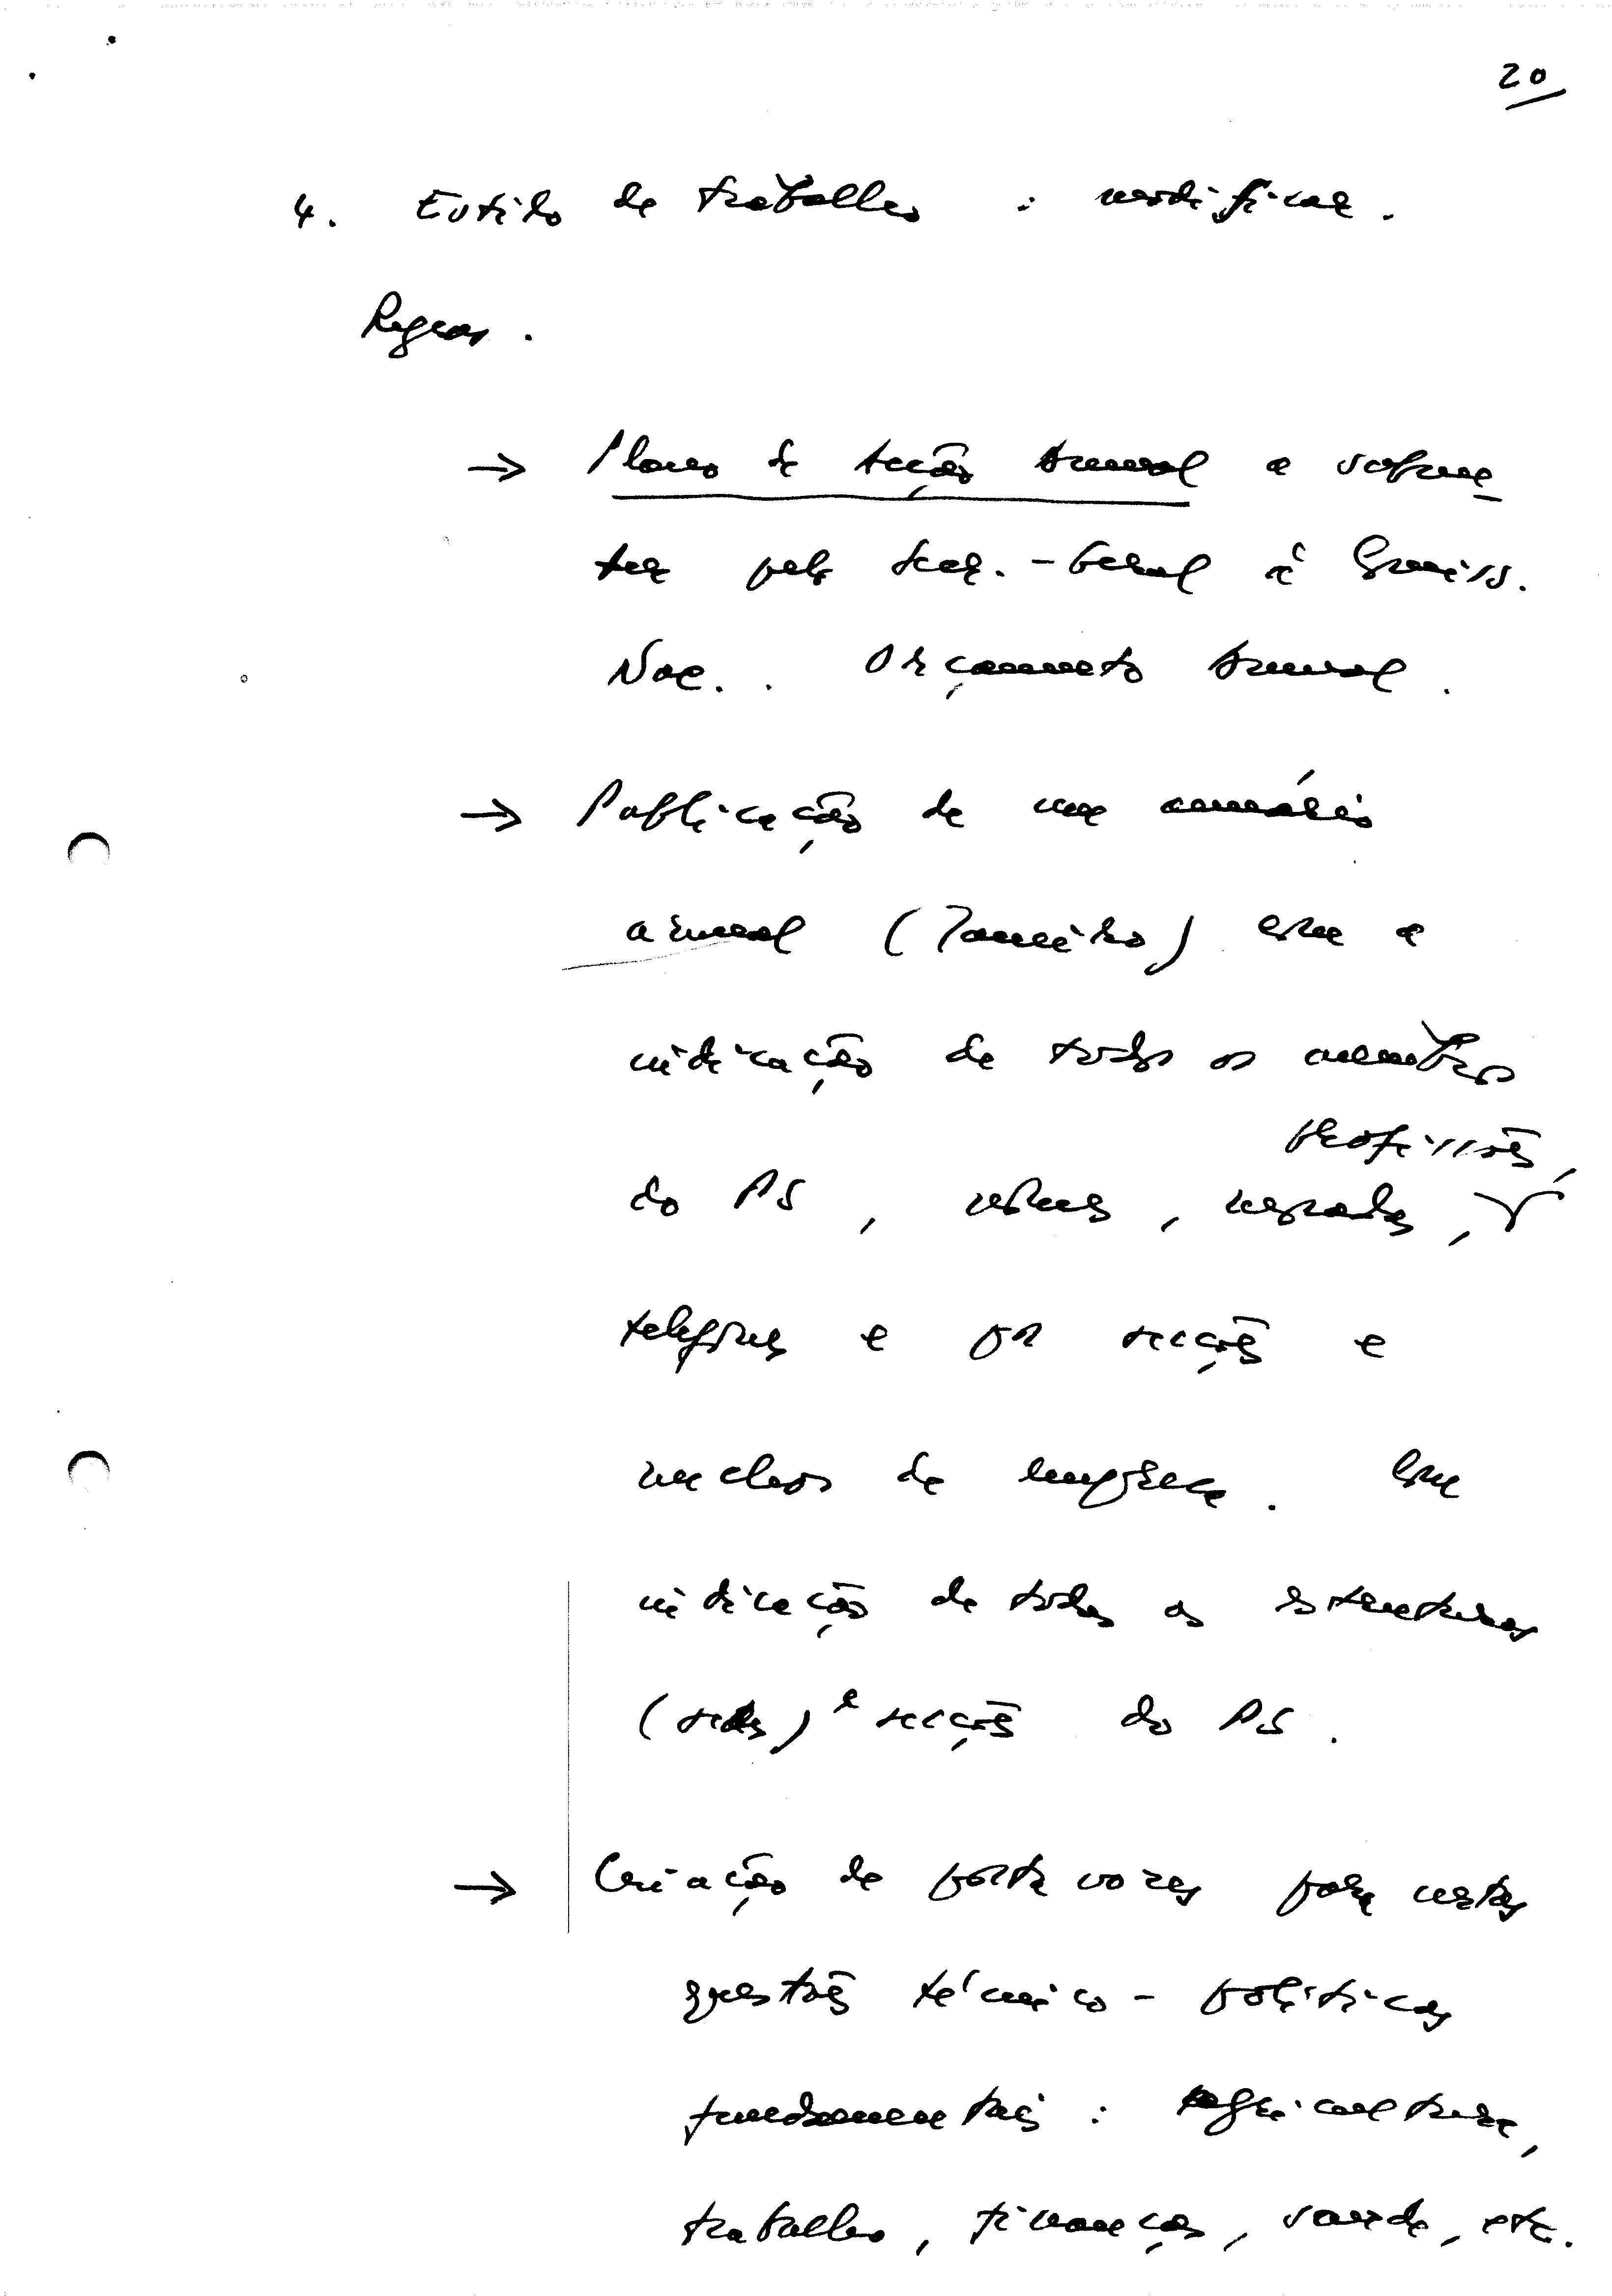 20
4. Estilo de trabalho : modificar.
Regras.
→ Plano de Acção Anual a subme
ter pelo Secr.-Geral à Comiss.
Nac. . Orçamento Anual.
→ Publicação de um anuário
anual (Janeiro) com a
indicação de todos os membros
profissões,
do PS, nomes, moradas,
telefones e por secções e
nucleos de empresa. Com
indicação de todas as estruturas
(sedes) e secções do PS.
→ Criação de porta vozes para certas
questões técnico-políticas
fundamentais : Agricultura,
trabalho, finanças, saude, etc.